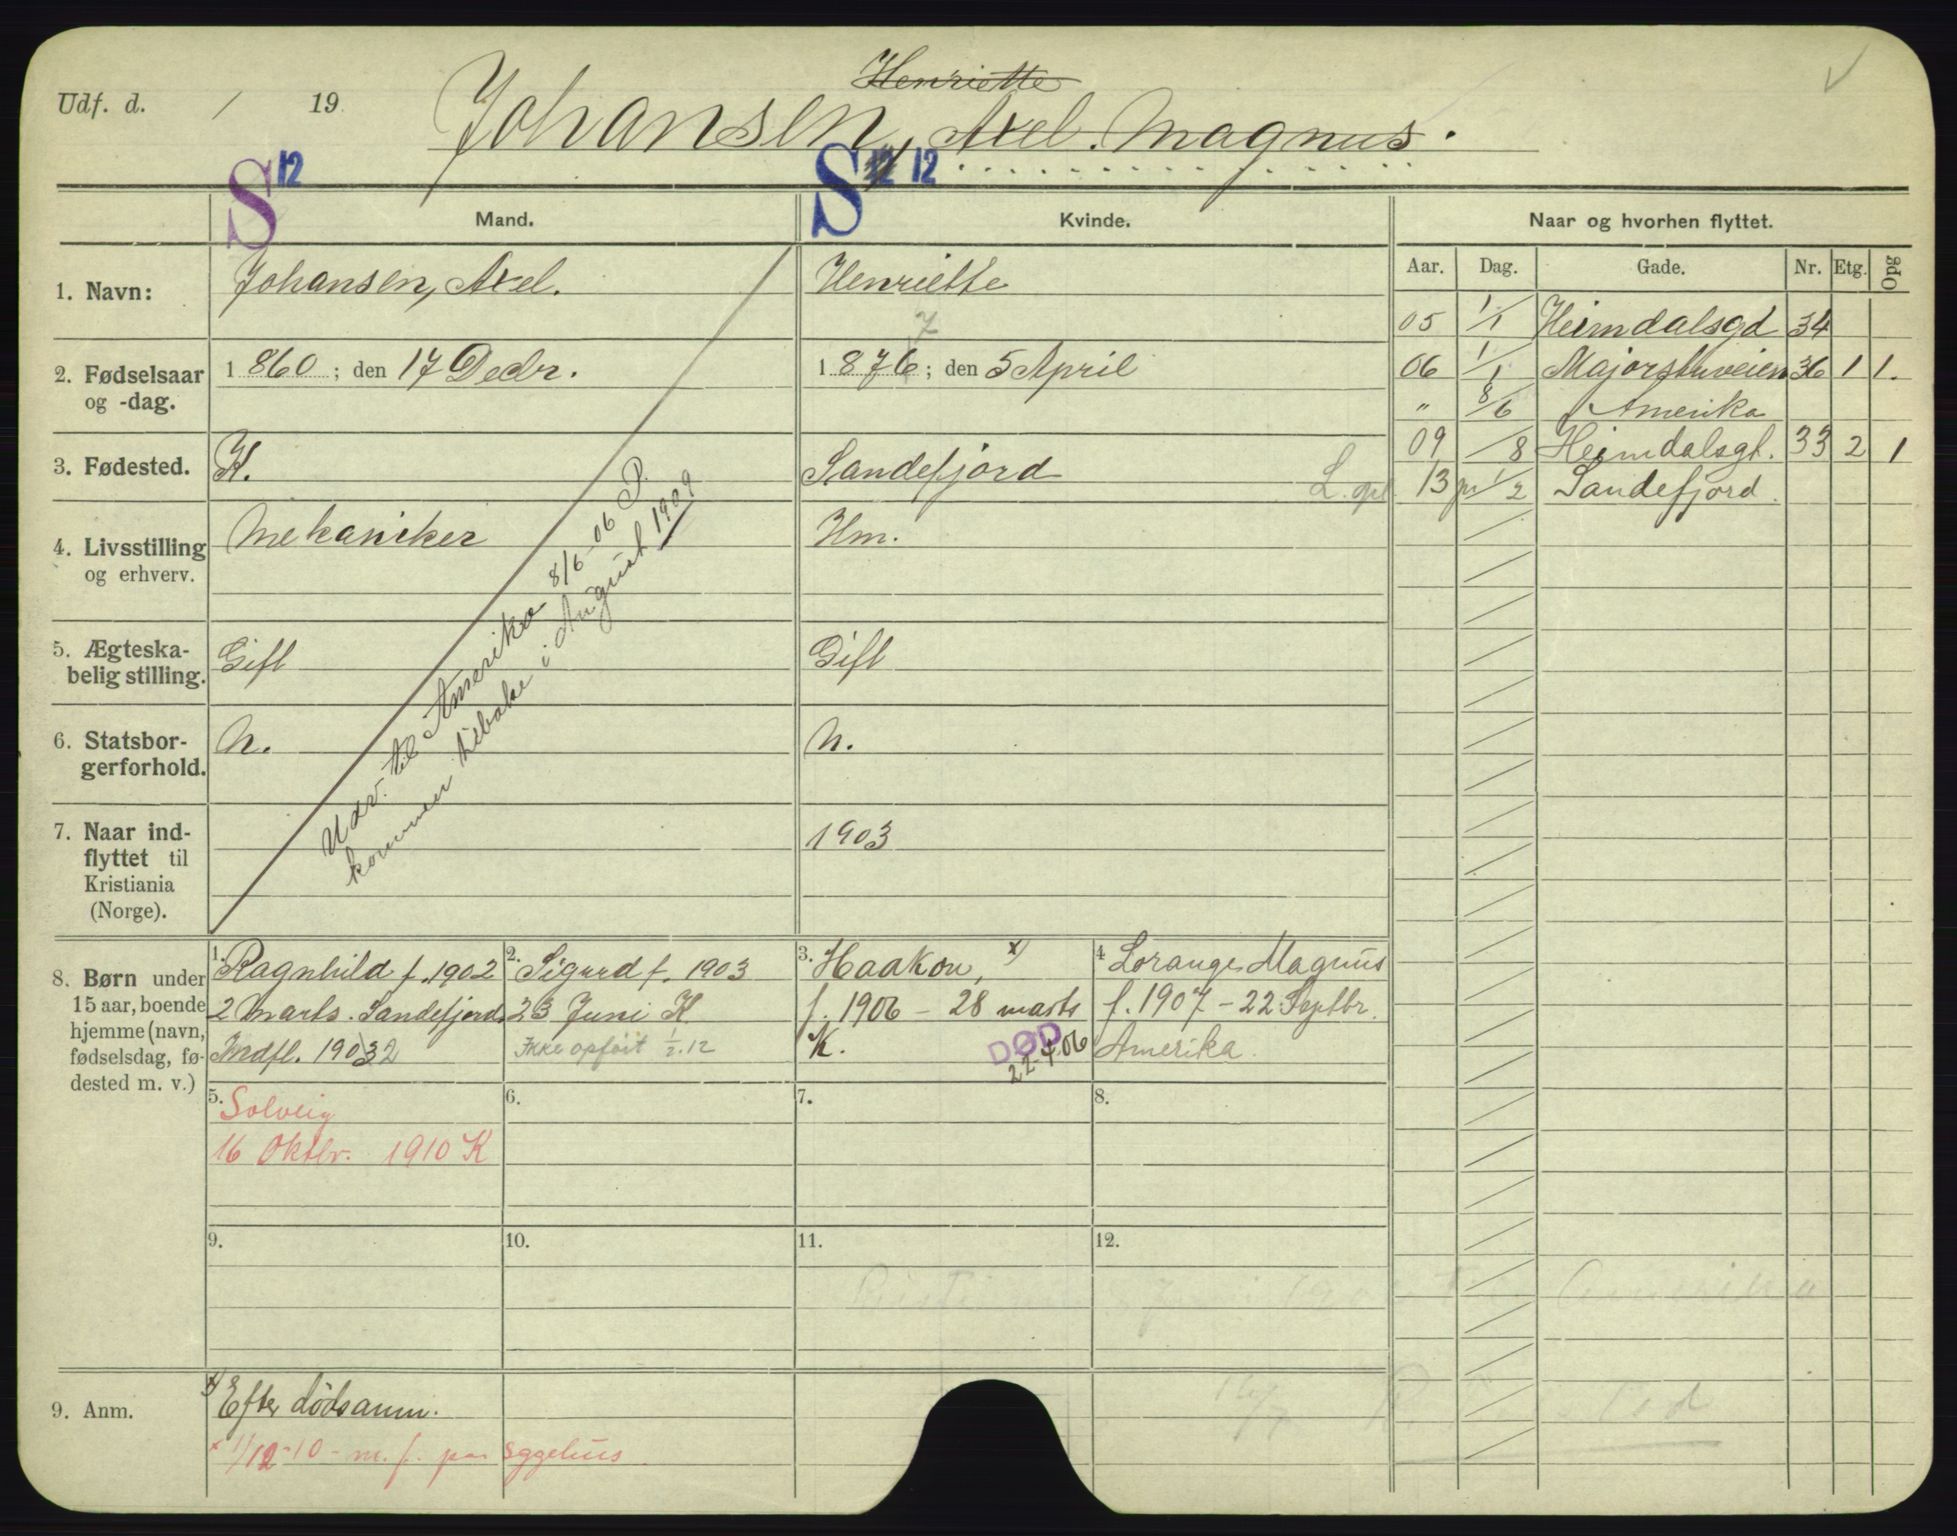 Henriette
Udf. d. / 19 Johansen, Axel Magnus.
S 12 S 12 12
Mand. Kvinde. Naar og hvorhen flyttet.
Aar. Dag. Gade. Nr. Etg. Opg
1. Navn: Johansen, Axel. Henriette
7
05 1/1 Heimdalsgd 34
2. Fødselsaar og -dag. 1860; den 17 Decbr. 1876; den 5 April
06 1/1 Majorstuveien 36 1 1.
" 8/6 Amerika
09 /8 Heimdalsgt. 33 2 1
3. Fødested. K. Sandefjord
13 1/2 Sandefjord.
4. Livsstilling og erhverv. Mekaniker Hm.
5. Ægteskabelig stilling. Gift Gift
6. Statsborgerforhold. N. N.
7. Naar indflyttet til Kristiania (Norge). 1903
Udv. til Amerika 8/6-06 P.
kommen tilbake i August 1909
8. Børn under 15 aar, boende hjemme (navn, fødselsdag, fødested m. v.)
1. Ragnhild f. 1902
2 Marts. Sandefjord
Indfl. 19032
2. Sigurd f. 1903
23 Juni K.
Ikke opført 1/2.12
3. Haakon, x)
f. 1906 - 28 marts
K. DØD
22-4 06
4. Lorange Magnus
f. 1907 - 22 Septbr.
Amerika.
5. Solveig
16 Oktbr. 1910 K
6.
7.
8.
9.
10.
11.
12.
Amerika
9. Anm. x) Efter dødsanm.
x 1/12-10 - m. f. paa Eggehus.